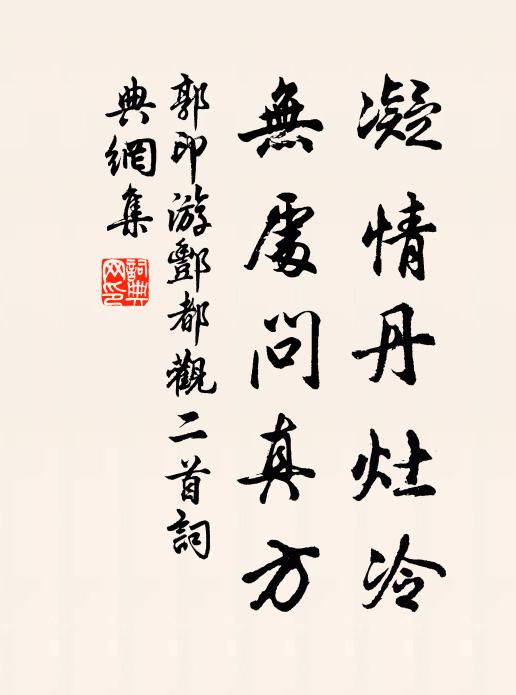 凝情丹灶冷
無處問真方
郭印游酆都觀二首詞
典網集
詞典
网印